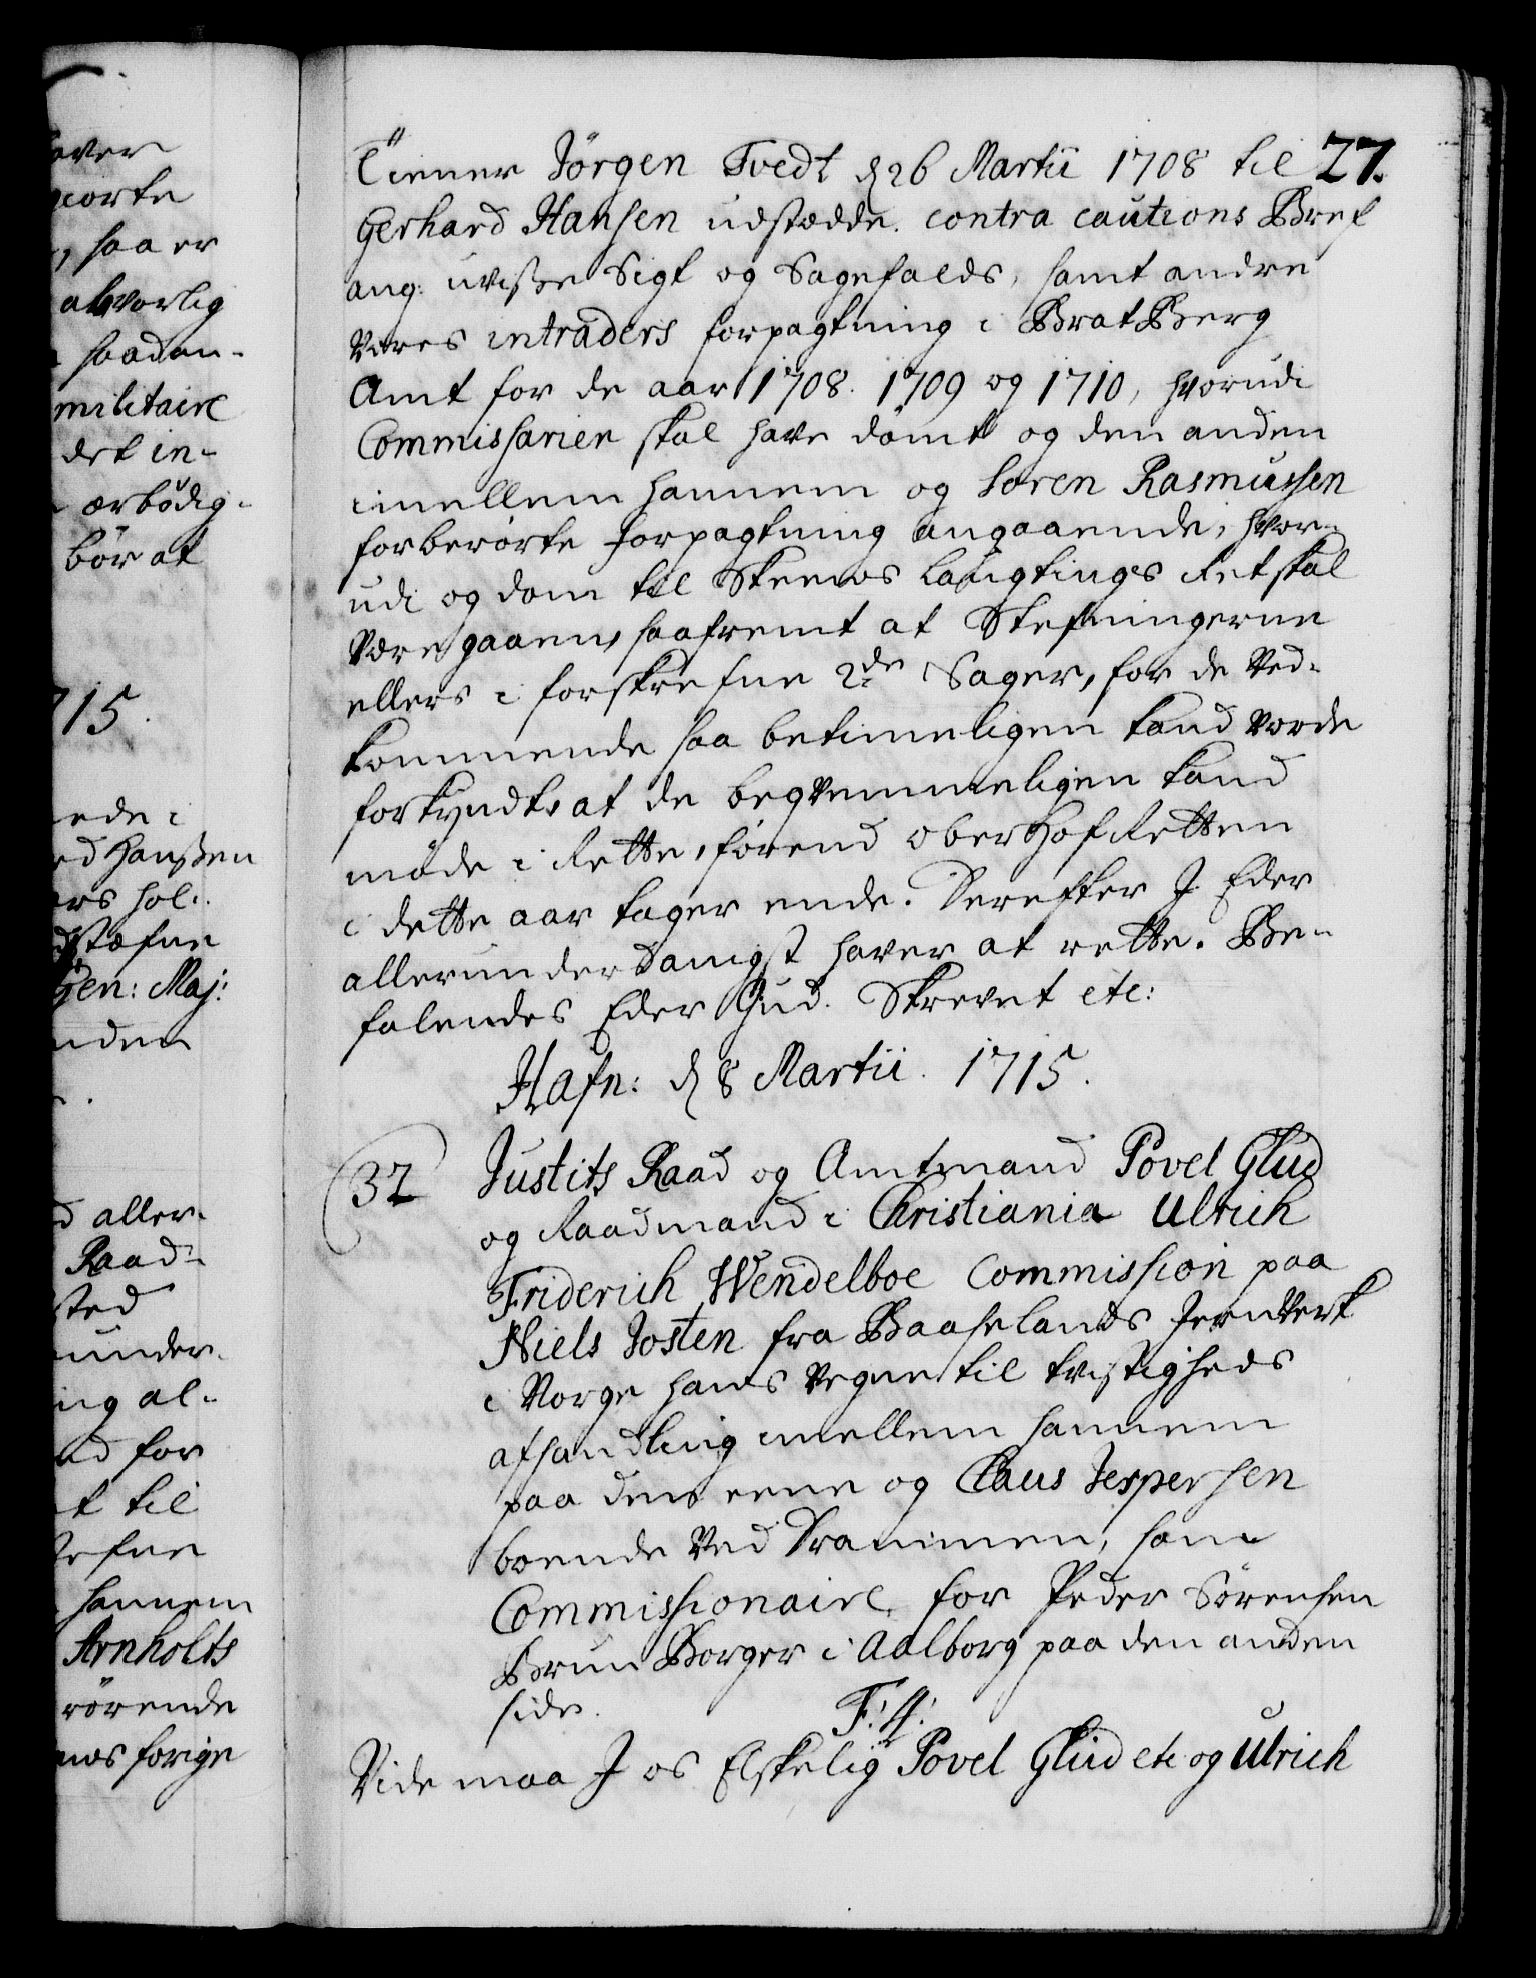 Tienner Jörgen Tvedt d 26 Martii 1708 til 27.
Gerhard Hansen udstædde contra cautions Bref
ang: uvisse Sigt og Sagefalds, samt andre
Vores intraders forpagtning i BratBerg
Amt for de aar 1708. 1709 og 1710, hvorudi
Commissarier skal have dömt og den anden
imellem hannem og Soren Rasmussen
forberörte forpagtning angaaende, hvor-
udi og dom til Skeens Laugtings Ret skal
være gaaen, saafremt at Stefningerne
ellers i forskrefne 2de Sager, for de Ved-
kommende saa betimeligen kand vorde
forkyndt, at de beqvemmeligen kand
möde i Rette, förend OberHofRetten
i dette aar tager ende. Derefter I Eder
allerunderdanigst haver at rette. Be-
falendes Eder Gud. Skrevet etc:
Hafn: d 8 Martii. 1715.
32 Justits Raad og Amtmand Povel Glud
og Raadmand i Christiania Ulrich
Friderich Wendelboe Commission paa
Niels Josten fra Baaselands JernVerk
i Norge hans Vegne til tvistigheds
afhandling imellem hannem
paa den eene og Claus Jespersen
boende Ved Drammen, som
Commissionaire for Peder Sörensen
Brun Borger i Aalborg paa den anden
side.
F: 4:
Vide maa I os Elskelig Povel Glud etc og Ulrich